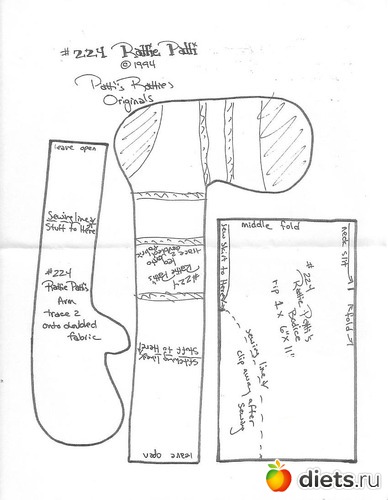 #224 Rattie Patti
©1994
Patti's Ratties
Originals
leave open
Sewing line &
Stuff to Here
#224
Rattie Patti's
Arm
trace 2
onto doubled
fabric
#224
Rattie Patti's
Leg
trace 2
stitching line &
stuff to Here
leave open
middle fold
neck slit
fold
sew skirt to Here
#224
Rattie Patti's
Bodice
rip 1 x 6" x 11"
sewing line &
clip away after
sewing
diets.ru